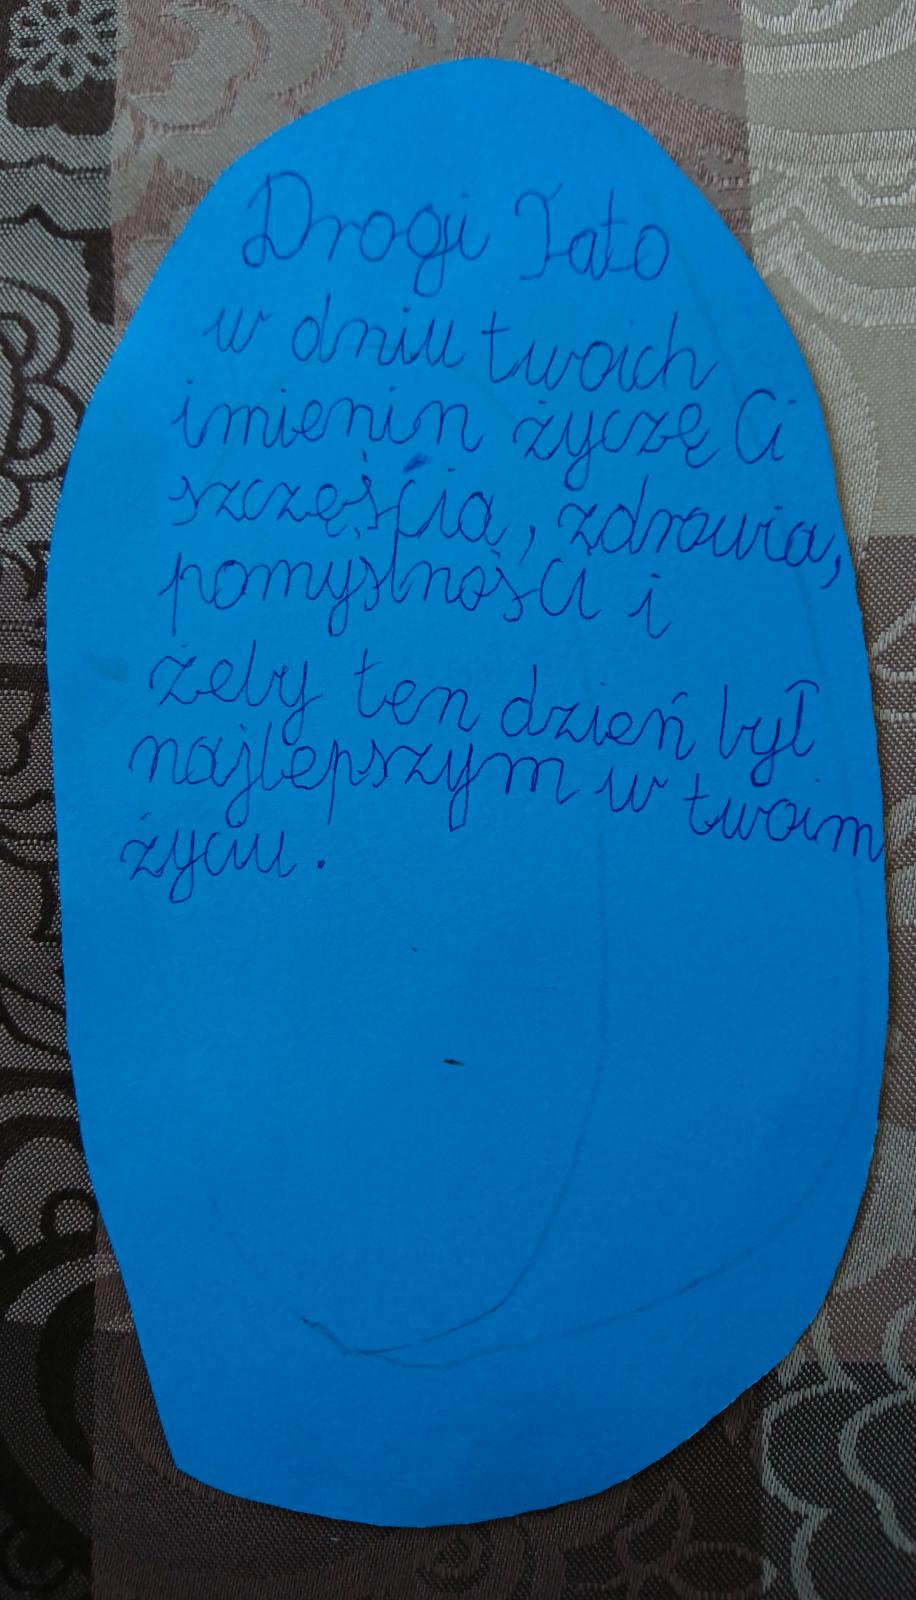 Drogi Tato
w dniu twoich
imienin życzę Ci
szczęścia, zdrowia,
pomyślności i
żeby ten dzień był
najlepszym w twoim
życiu.